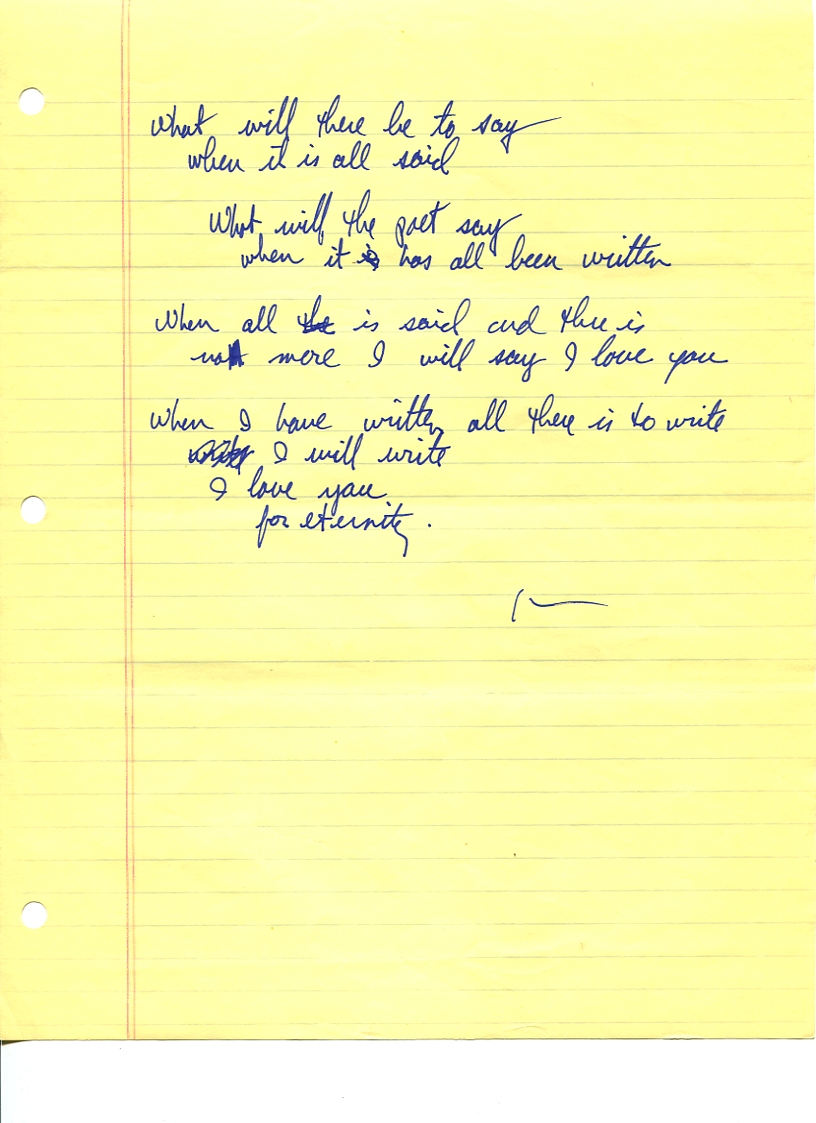 What will there be to say
when it is all said
What will the poet say
when it has all been written
When all is said and there is
no more I will say I love you
When I have written all there is to write
I will write
I love you
for eternity.